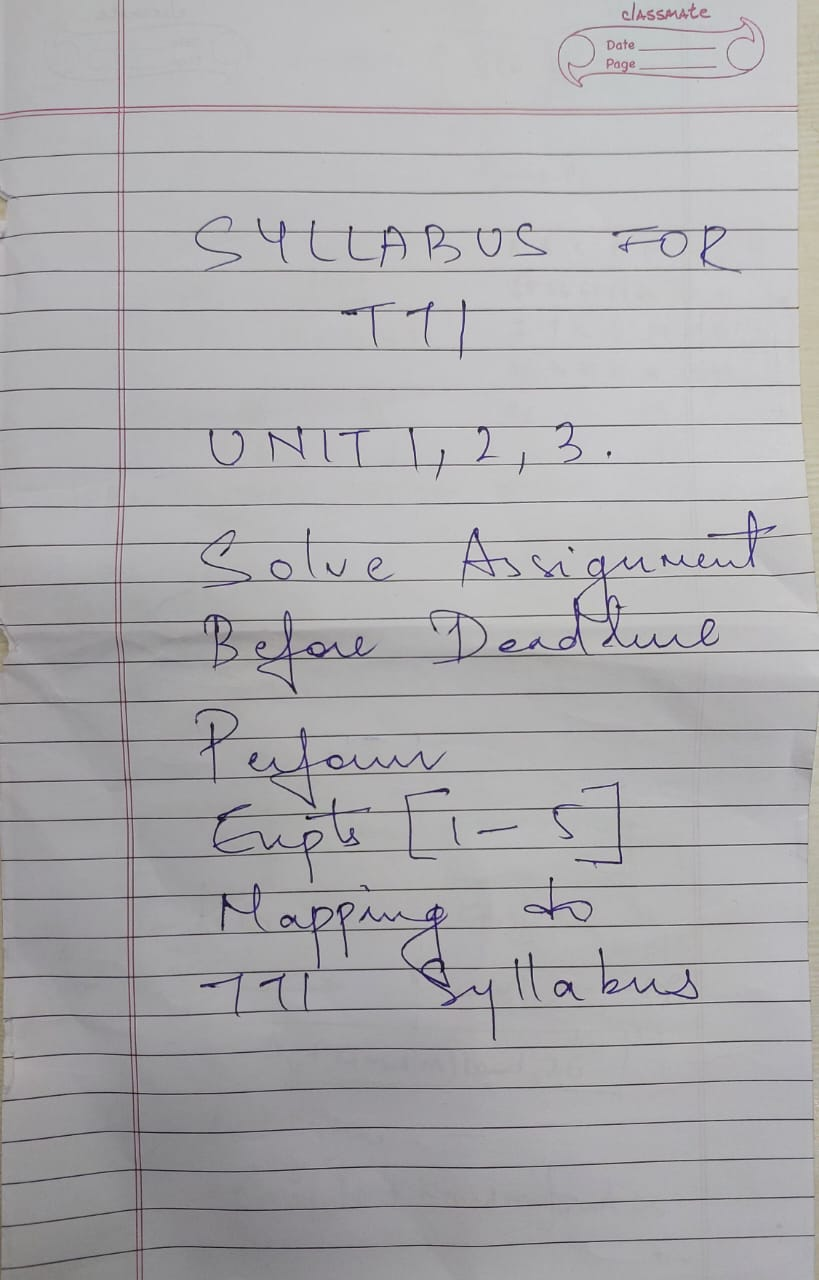 classmate
Date
Page
SYLLABUS FOR
TT1
UNIT 1, 2, 3.
Solve Assignment
Before Deadline
Perform
Expts [1-5]
Mapping to
TT1 Syllabus